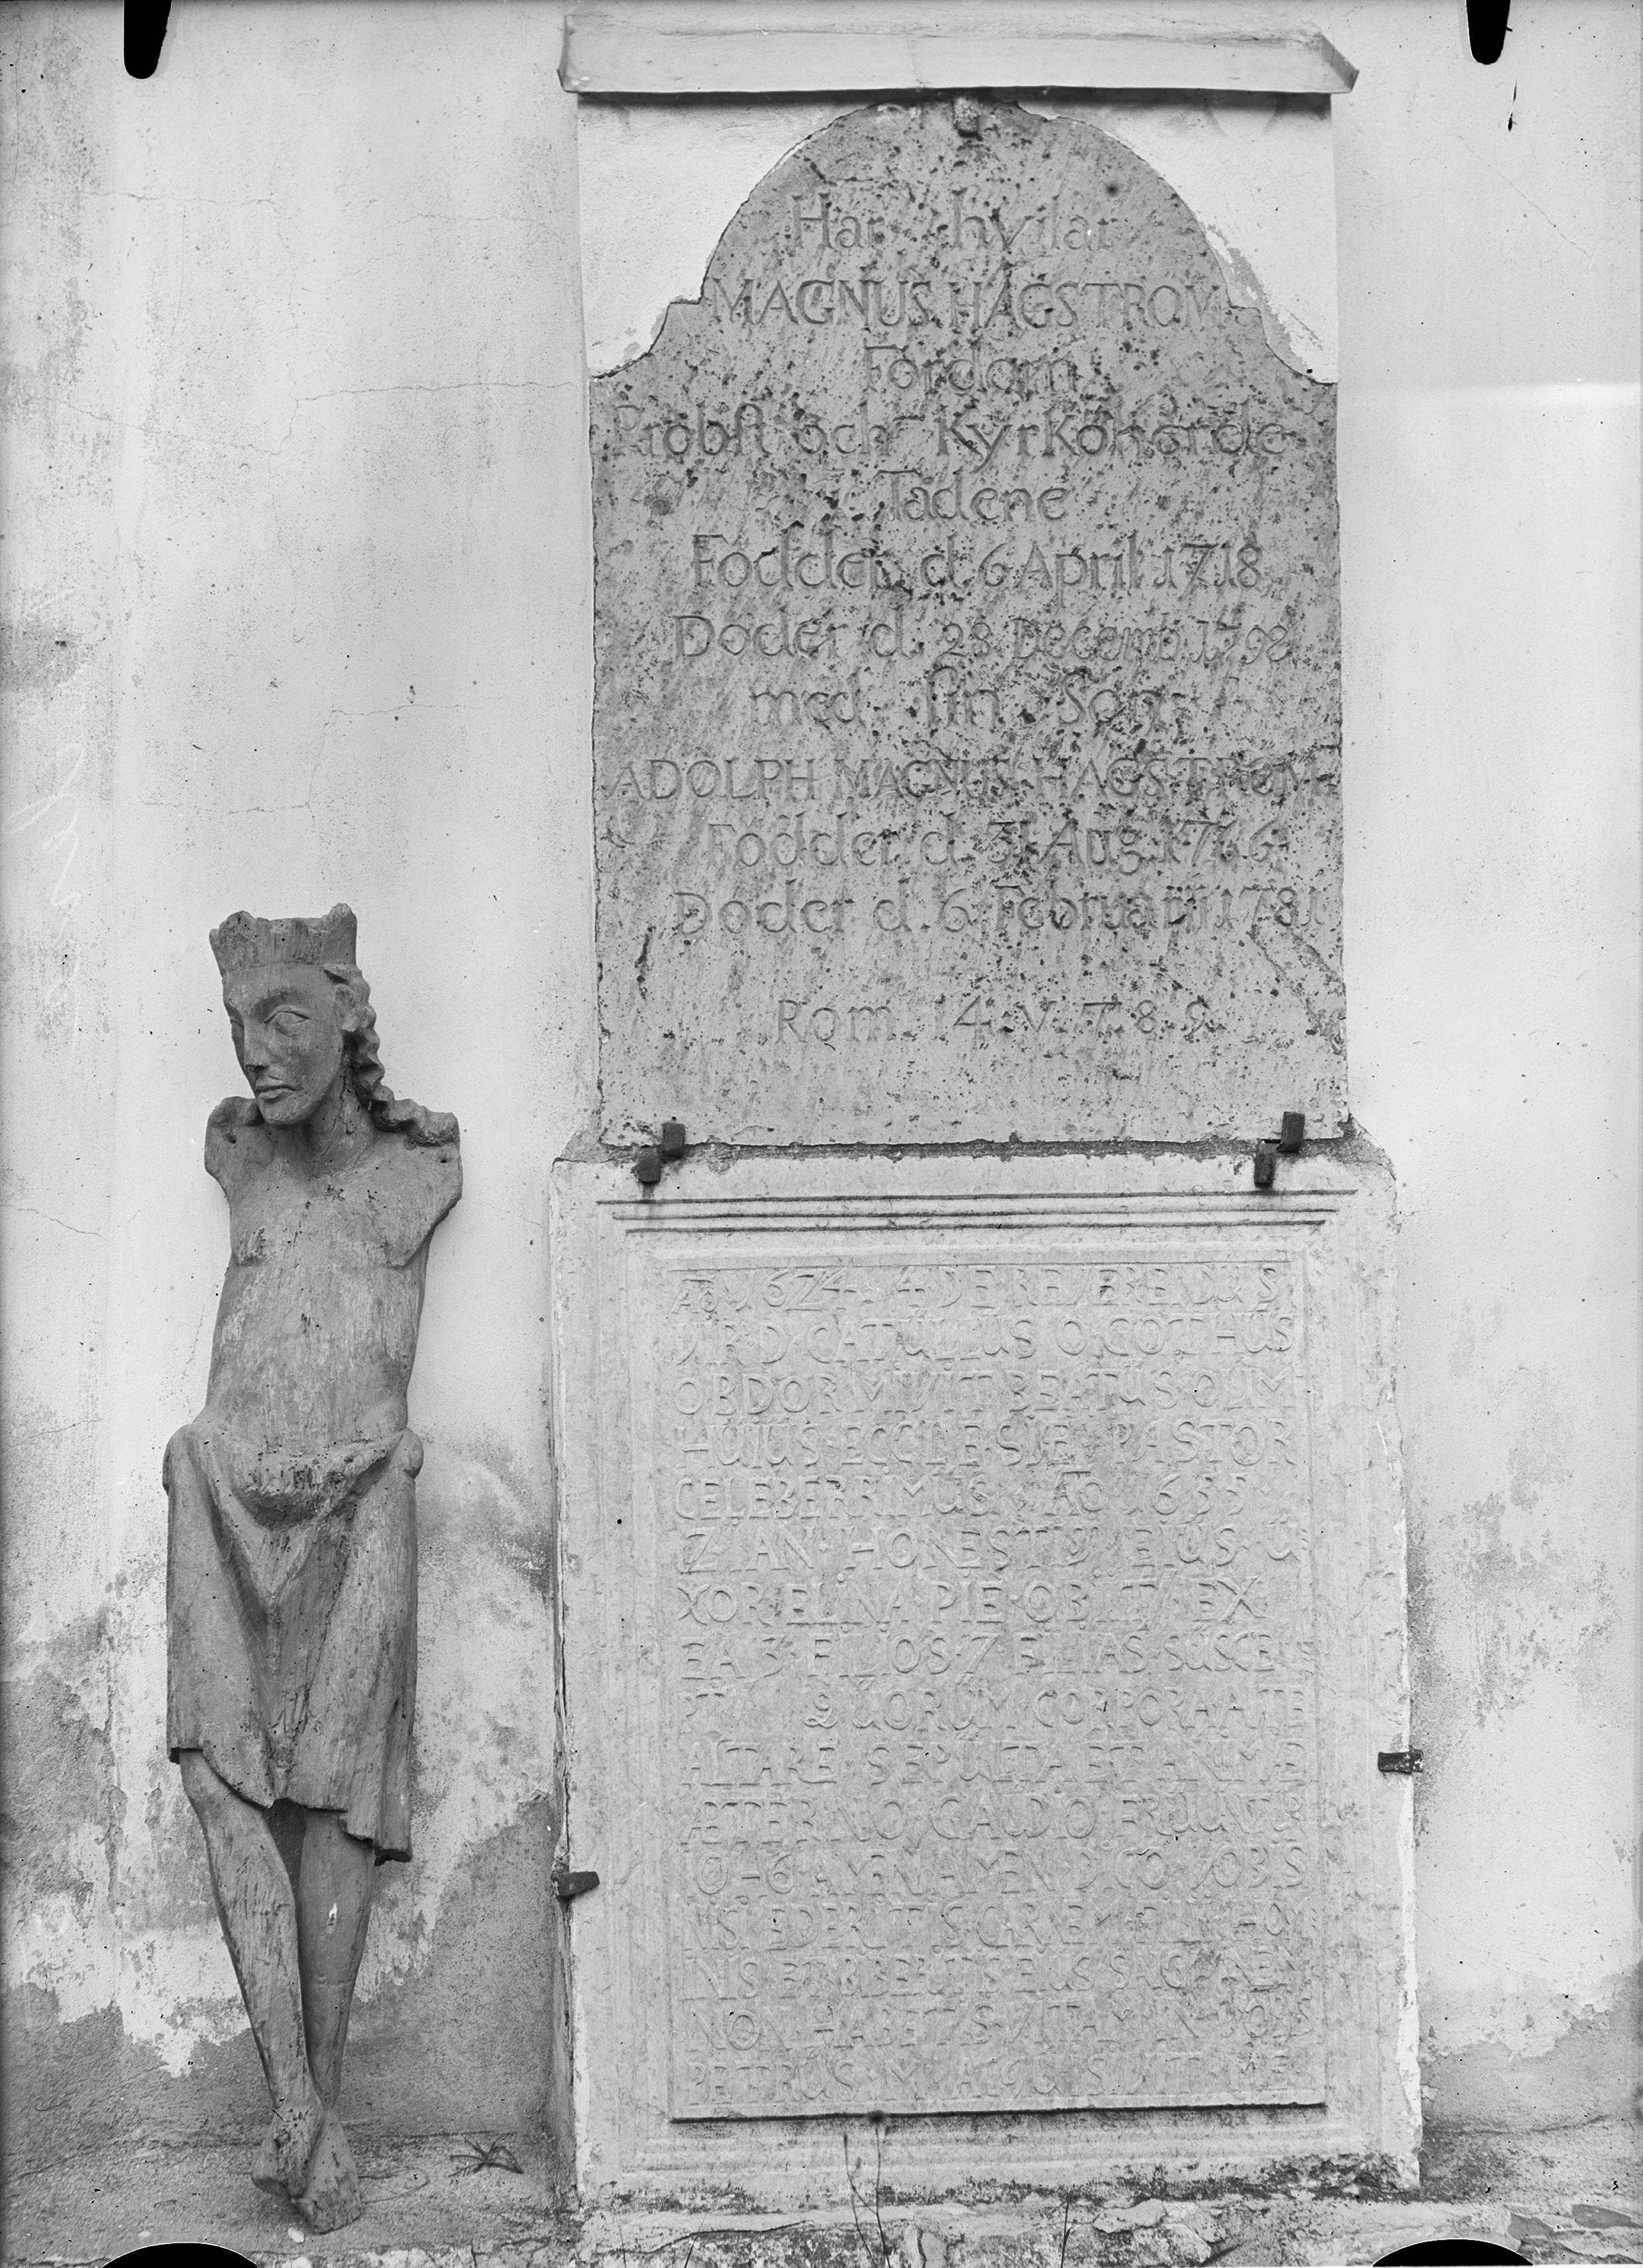 Har hvilar
MAGNUS HAGSTROM
Fordom
Probst och Kyrkoherde
Tadene
Fodder d. 6 April 1718
Doder d. 28 Decemb. 1798
med sin Son
ADOLPH MAGNUS HAGSTROM
Fodder d. 31 Aug. 1766
Doder d. 6 Februarii 1781
Rom. 14. v. 7. 8. 9.
AŌ 1624 4 DE REVERENDUS
VIR D CATULLUS O. GOTHUS
OBDORMIVIT BEATUS OLIM
HUIUS ECCLESIÆ PASTOR
CELEBERRIMUS AŌ 1655
IAN HONESTI EIUS U
XOR ELINA PIE OBIIT EX
EA 3 FILIOS 7 FILIAS SUSCE
PIT QUORUM CORPORA ANTE
ALTARE SEPULTA ET ANIMÆ
ÆTERNO GAUDIO FRUUNTUR
IO 6 AMEN AMEN DICO VOBIS
NISI EDERITIS CARNEM FILII HOMI
NIS ET BIBERITIS EIUS SANGUINEM
NON HABETIS VITAM IN VOBIS
PETRUS M